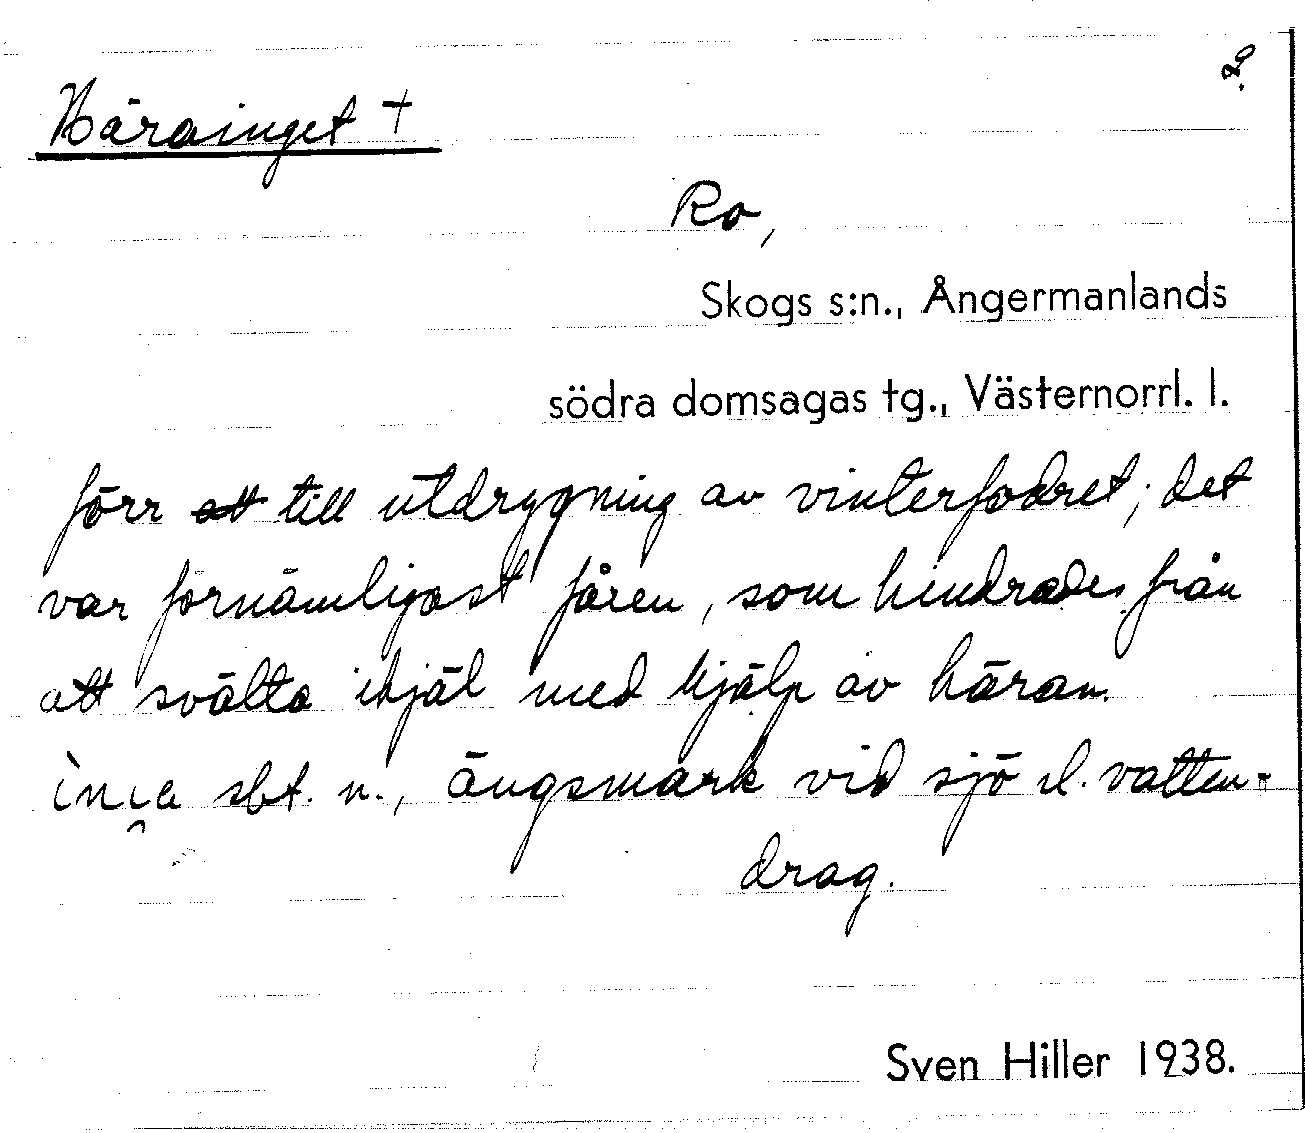 2.
Härainget +
Ro,
Skogs s:n., Ångermanlands
södra domsagas tg., Västernorrl. l.
förr att till utdrygning av vinterfodret; det
var förnämligast fåren, som hindrades från
att svälta ihjäl med hjälp av häran.
sbt. n., ängsmark vid sjö el. vatten-
drag.
Sven Hiller 1938.